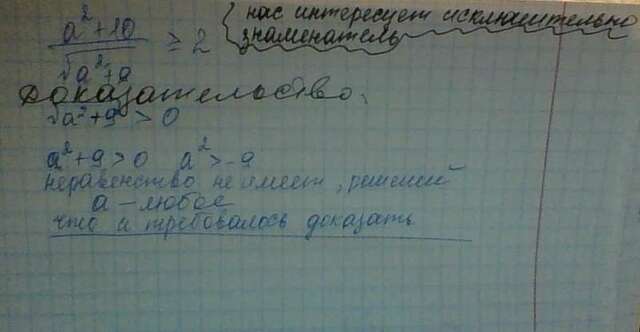 a² + 10 / √a² + 9 ≥ 2 { нас интересует исключительно
знаменатель
Доказательство.
√a² + 9 > 0
a² + 9 > 0 a² > -9
неравенство не имеет, решений
a – любое
что и требовалось доказать